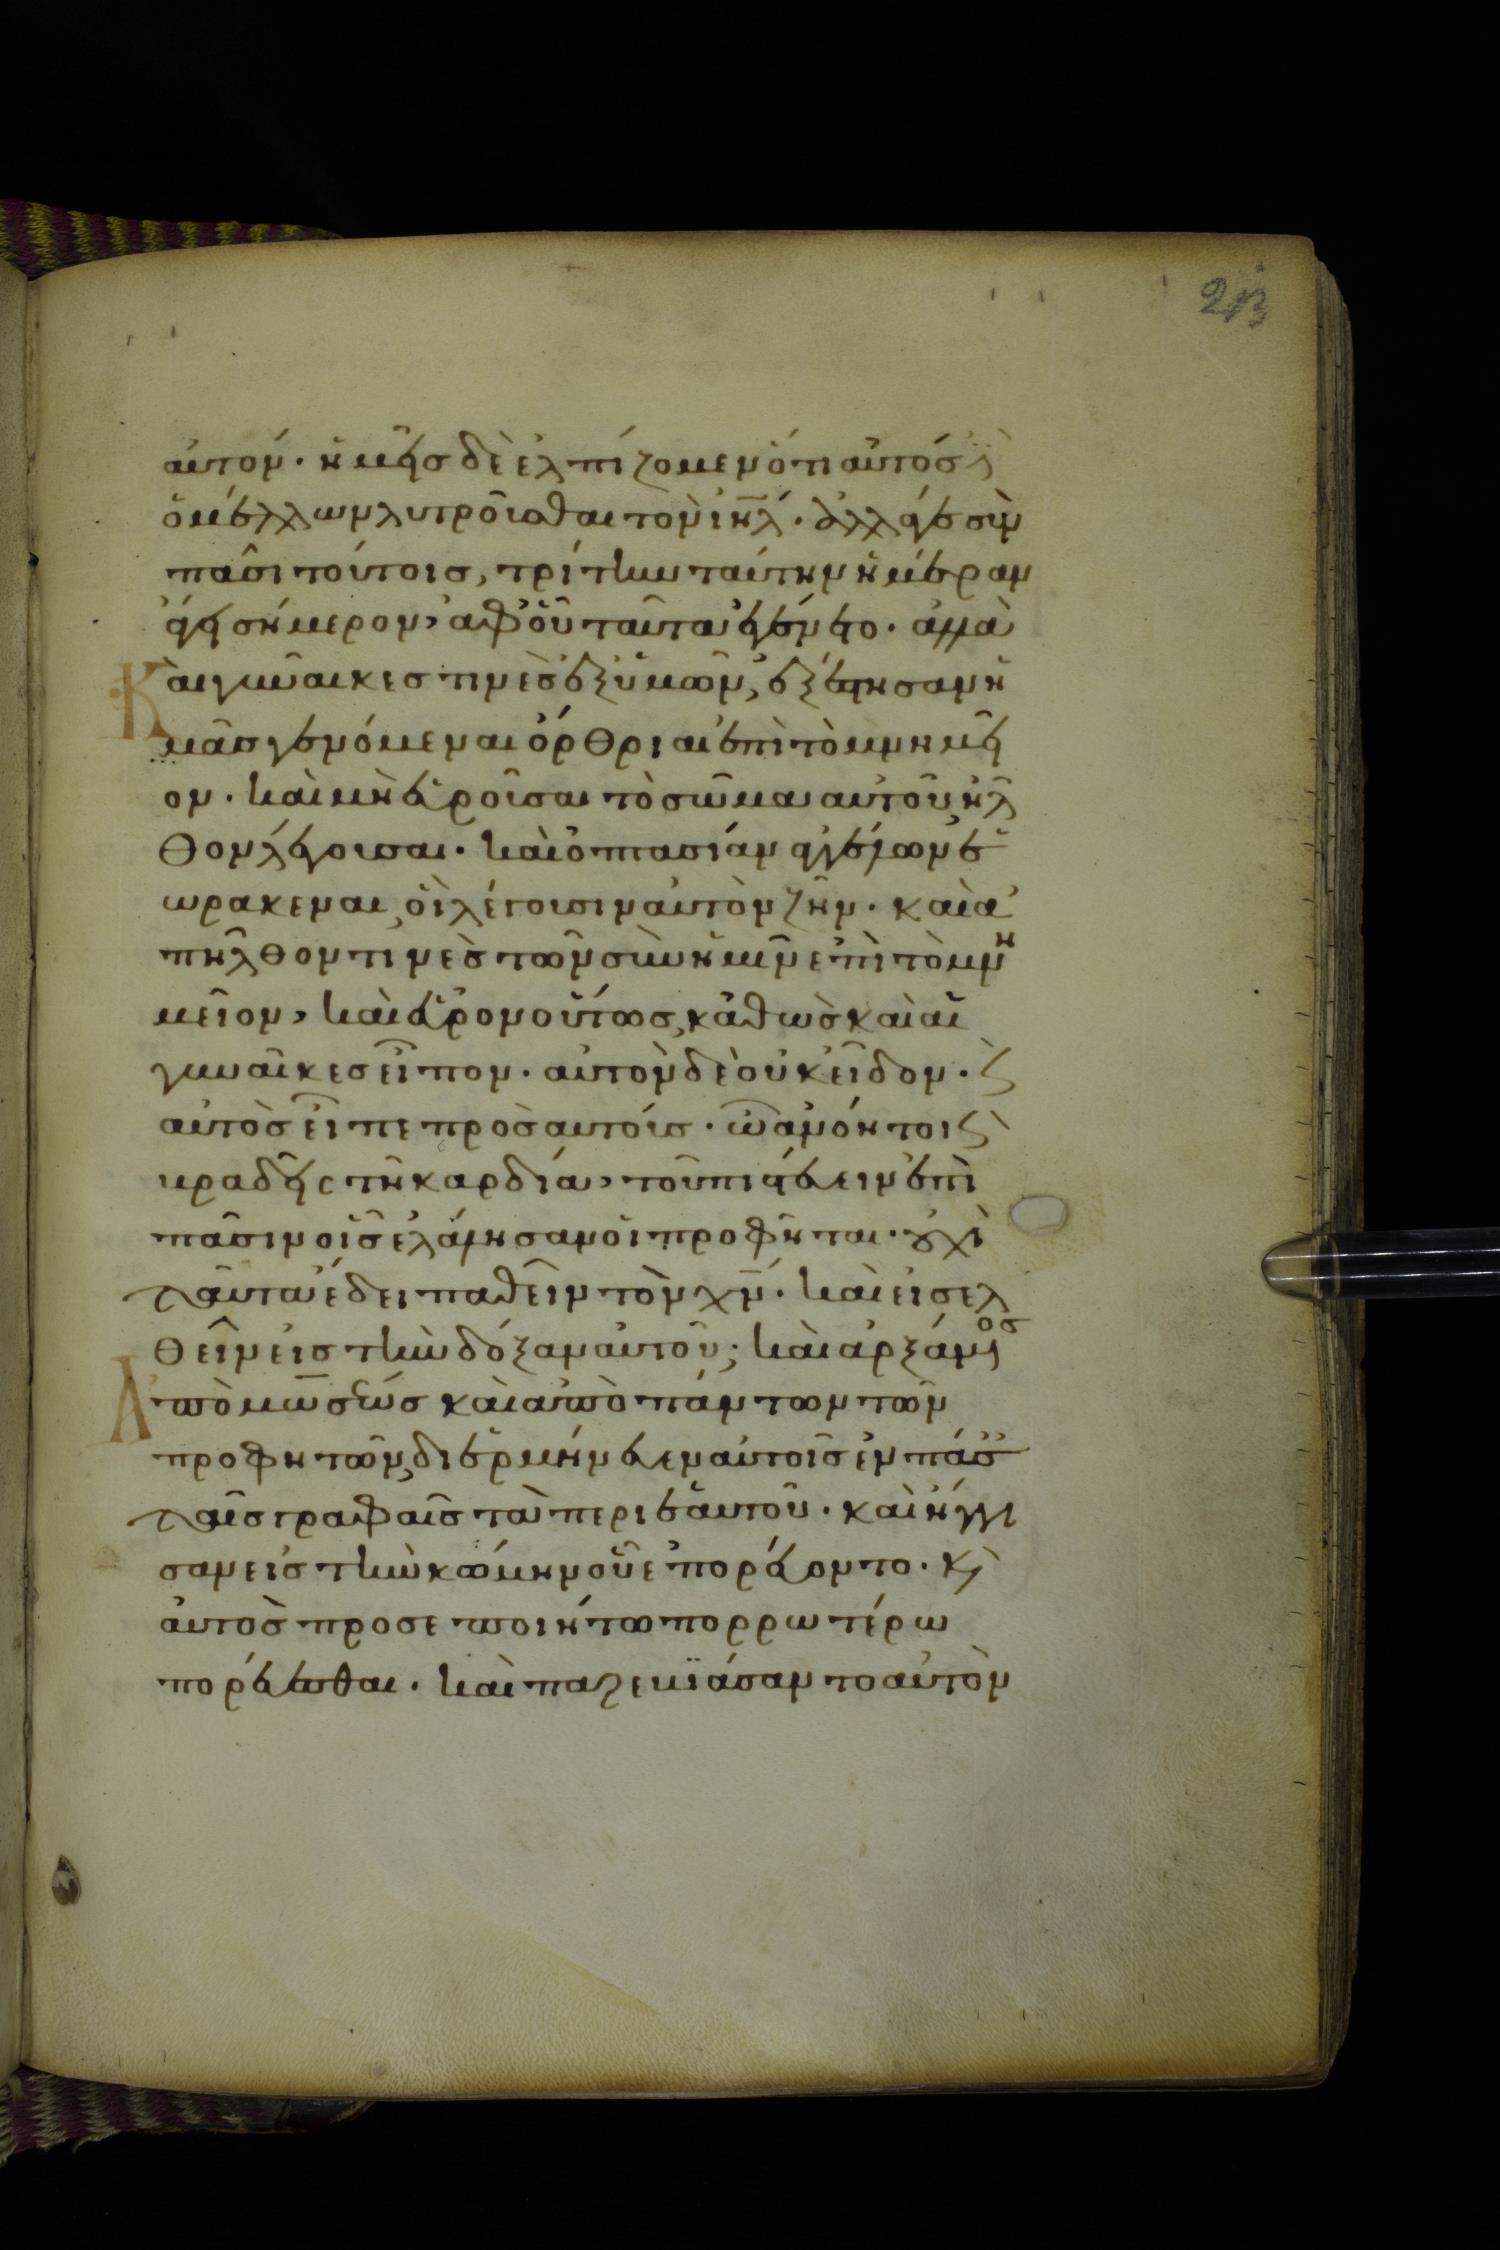 213
αὐτόν· ἡμεῖς δὲ ἐλπίζομεν ὅτι αὐτός ἐ
ὁ μέλλων λυτροῦσθαι τὸν ἰηλ· ἀλλάγε σὺν
πᾶσι τούτοις, τρίτην ταύτην ἡμέραν
ἄγει σήμερον, ἀφ' οὗ ταῦτα ἐγένετο· ἀλλὰ
Καὶ γυναῖκες τινὲς ἐξ ἡμῶν, ἐξέστησαν ἡ
μᾶς γενόμεναι ὄρθριαι ἐπὶ τὸ μνημεῖ
ον· καὶ μὴ εὑροῦσαι τὸ σῶμα αὐτοῦ, ἦλ
θον λέγουσαι· καὶ ὀπτασίαν ἀγγέλων ἑ
ωρακεναι, οἳ λέγουσιν αὐτὸν ζῆν· καὶ ἀ
πῆλθον τινὲς τῶν σὺν ἡμῖν ἐπὶ τὸ μνη
μεῖον, καὶ εὗρον οὕτως, καθὼς καὶ αἱ
γυναῖκες εἶπον· αὐτὸν δὲ οὐκ εἶδον· ϛ
αὐτὸς εἶπε προς αυτούς· ὦ ἀνόητοι ϛ
βραδεῖς τῇ καρδία, τοῦ πιστεύειν ἐπὶ
πᾶσιν οἷς ἐλάλησαν οἱ προφῆται· οὐχὶ
ταῦτα ἔδει παθεῖν τὸν χν· καὶ εἰσελ
θεῖν εἰς τὴν δόξαν αὐτοῦ; καὶ ἀρξάμενος
Ἀπὸ μωσέως καὶ ἀπὸ πάντων τῶν
προφητῶν, διερμήνευεν αὐτοῖς ἐν πάσ
ταῖς γραφαῖς τὰ περι ἑαυτοῦ· καὶ ἤγγι
σαν εἰς τὴν κώμην οὗ ἐπορεύοντο· κ
αὐτὸς προσεποιήτω πορρωτέρω
πορεύεσθαι· καὶ παρεβϊάσαντο αὐτὸν